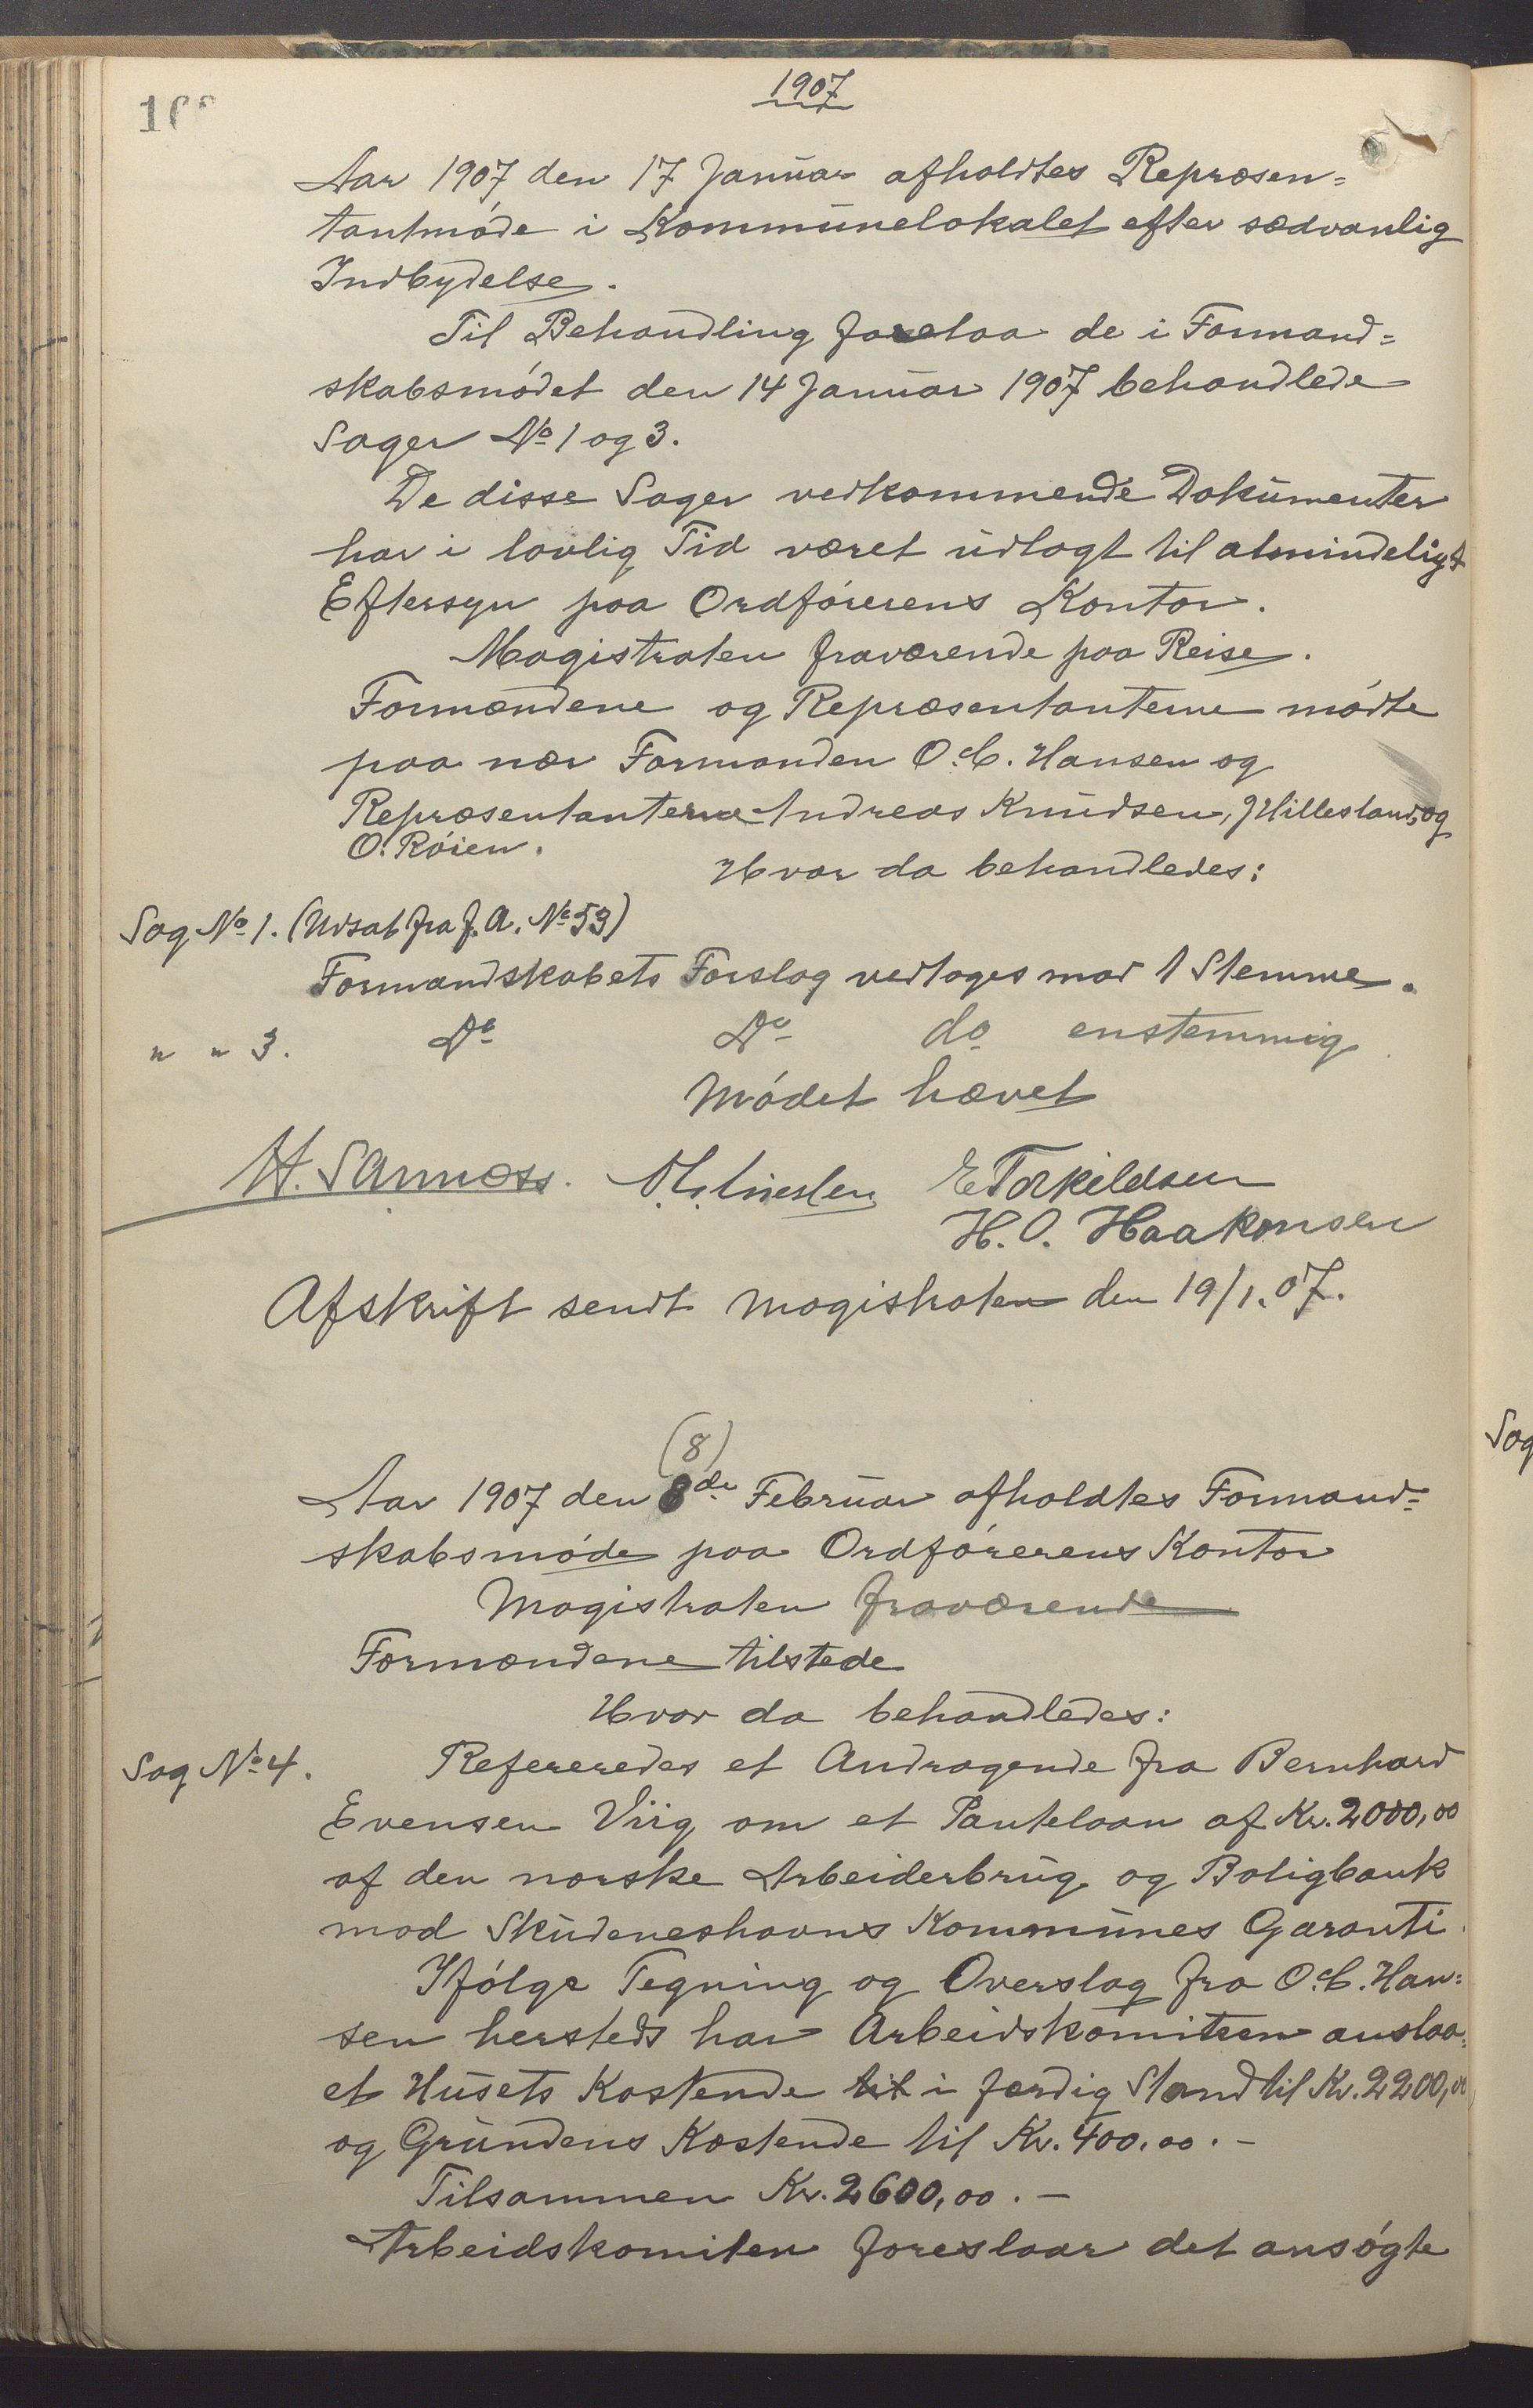 1907
Aar 1907 den 17 Januar afholdtes Repræsen=
tantmøde i Kommunelokalet efter sædvanlig
Indbydelse.
Til Behandling forelaa de i Formand=
skabsmødet den 14 Januar 1907 behandlede
Sager No 1 og 3.
De disse Sager vedkommende Dokumenter
har i lovlig Tid været udlagt til almindeligt
Eftersyn paa Ordførerens Kontor.
Magistraten fraværende paa Reise.
Formændene og Repræsentanterne mødte
paa nær Formanden O. C. Hansen og
Repræsentanterne Andreas Knudsen, J Hillesland, og
O. Røien.
Hvor da behandledes:
Sag No 1. (Udsat fra f. A. No 53)
Formandskabets Forslag vedtoges mod 1 Stemme.
" " 3. Do Do do enstemmig
Mødet hævet
H. Sannæss. E Torkildsen
H. O. Haakonsen
Afskrift sendt Magistraten den 19/1. 07.
(8)
Aar 1907 den 8de Februar afholdtes Formand=
skabsmøde paa Ordførerens Kontor
Magistraten fraværende
Formændene tilstede
Hvor da behandledes:
Sag No 4. Refereredes et Andragende fra Bernhard
Evensen Viig om et Pantelaan af Kr. 2000,00
af den norske Arbeiderbrug og Boligbank
mod Skudeneshavns Kommunes Garanti.
Ifølge Tegning og Overslag fra O. C. Han=
sen hersteds har Arbeidskomiteen anslaa=
et Husets Kostende til i færdig Stand til Kr. 2200,00
og Grundens Kostende til Kr. 400.00. -
Tilsammen Kr. 2600,00. -
Arbeidskomiteen foreslaar det ansøgte
Sag